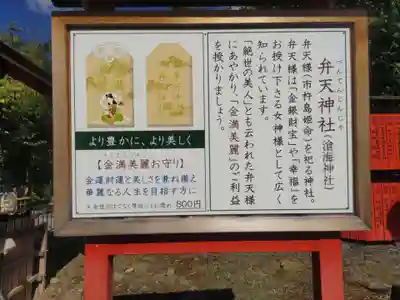 弁天神社（滄海神社）
べんてんじんじゃ
弁天様（市杵島姫命）を祀る神社。
弁天様は「金銀財宝」や「幸福」を
お授け下さる女神様として広く
知られています。
「絶世の美人」とも云われた弁天様
にあやかり、「金満美麗」のご利益
を授かりましょう。
より豊かに、より美しく
【金満美麗お守り】
金運財運と美しさを兼ね備え
華麗なる人生を目指す方に
800円